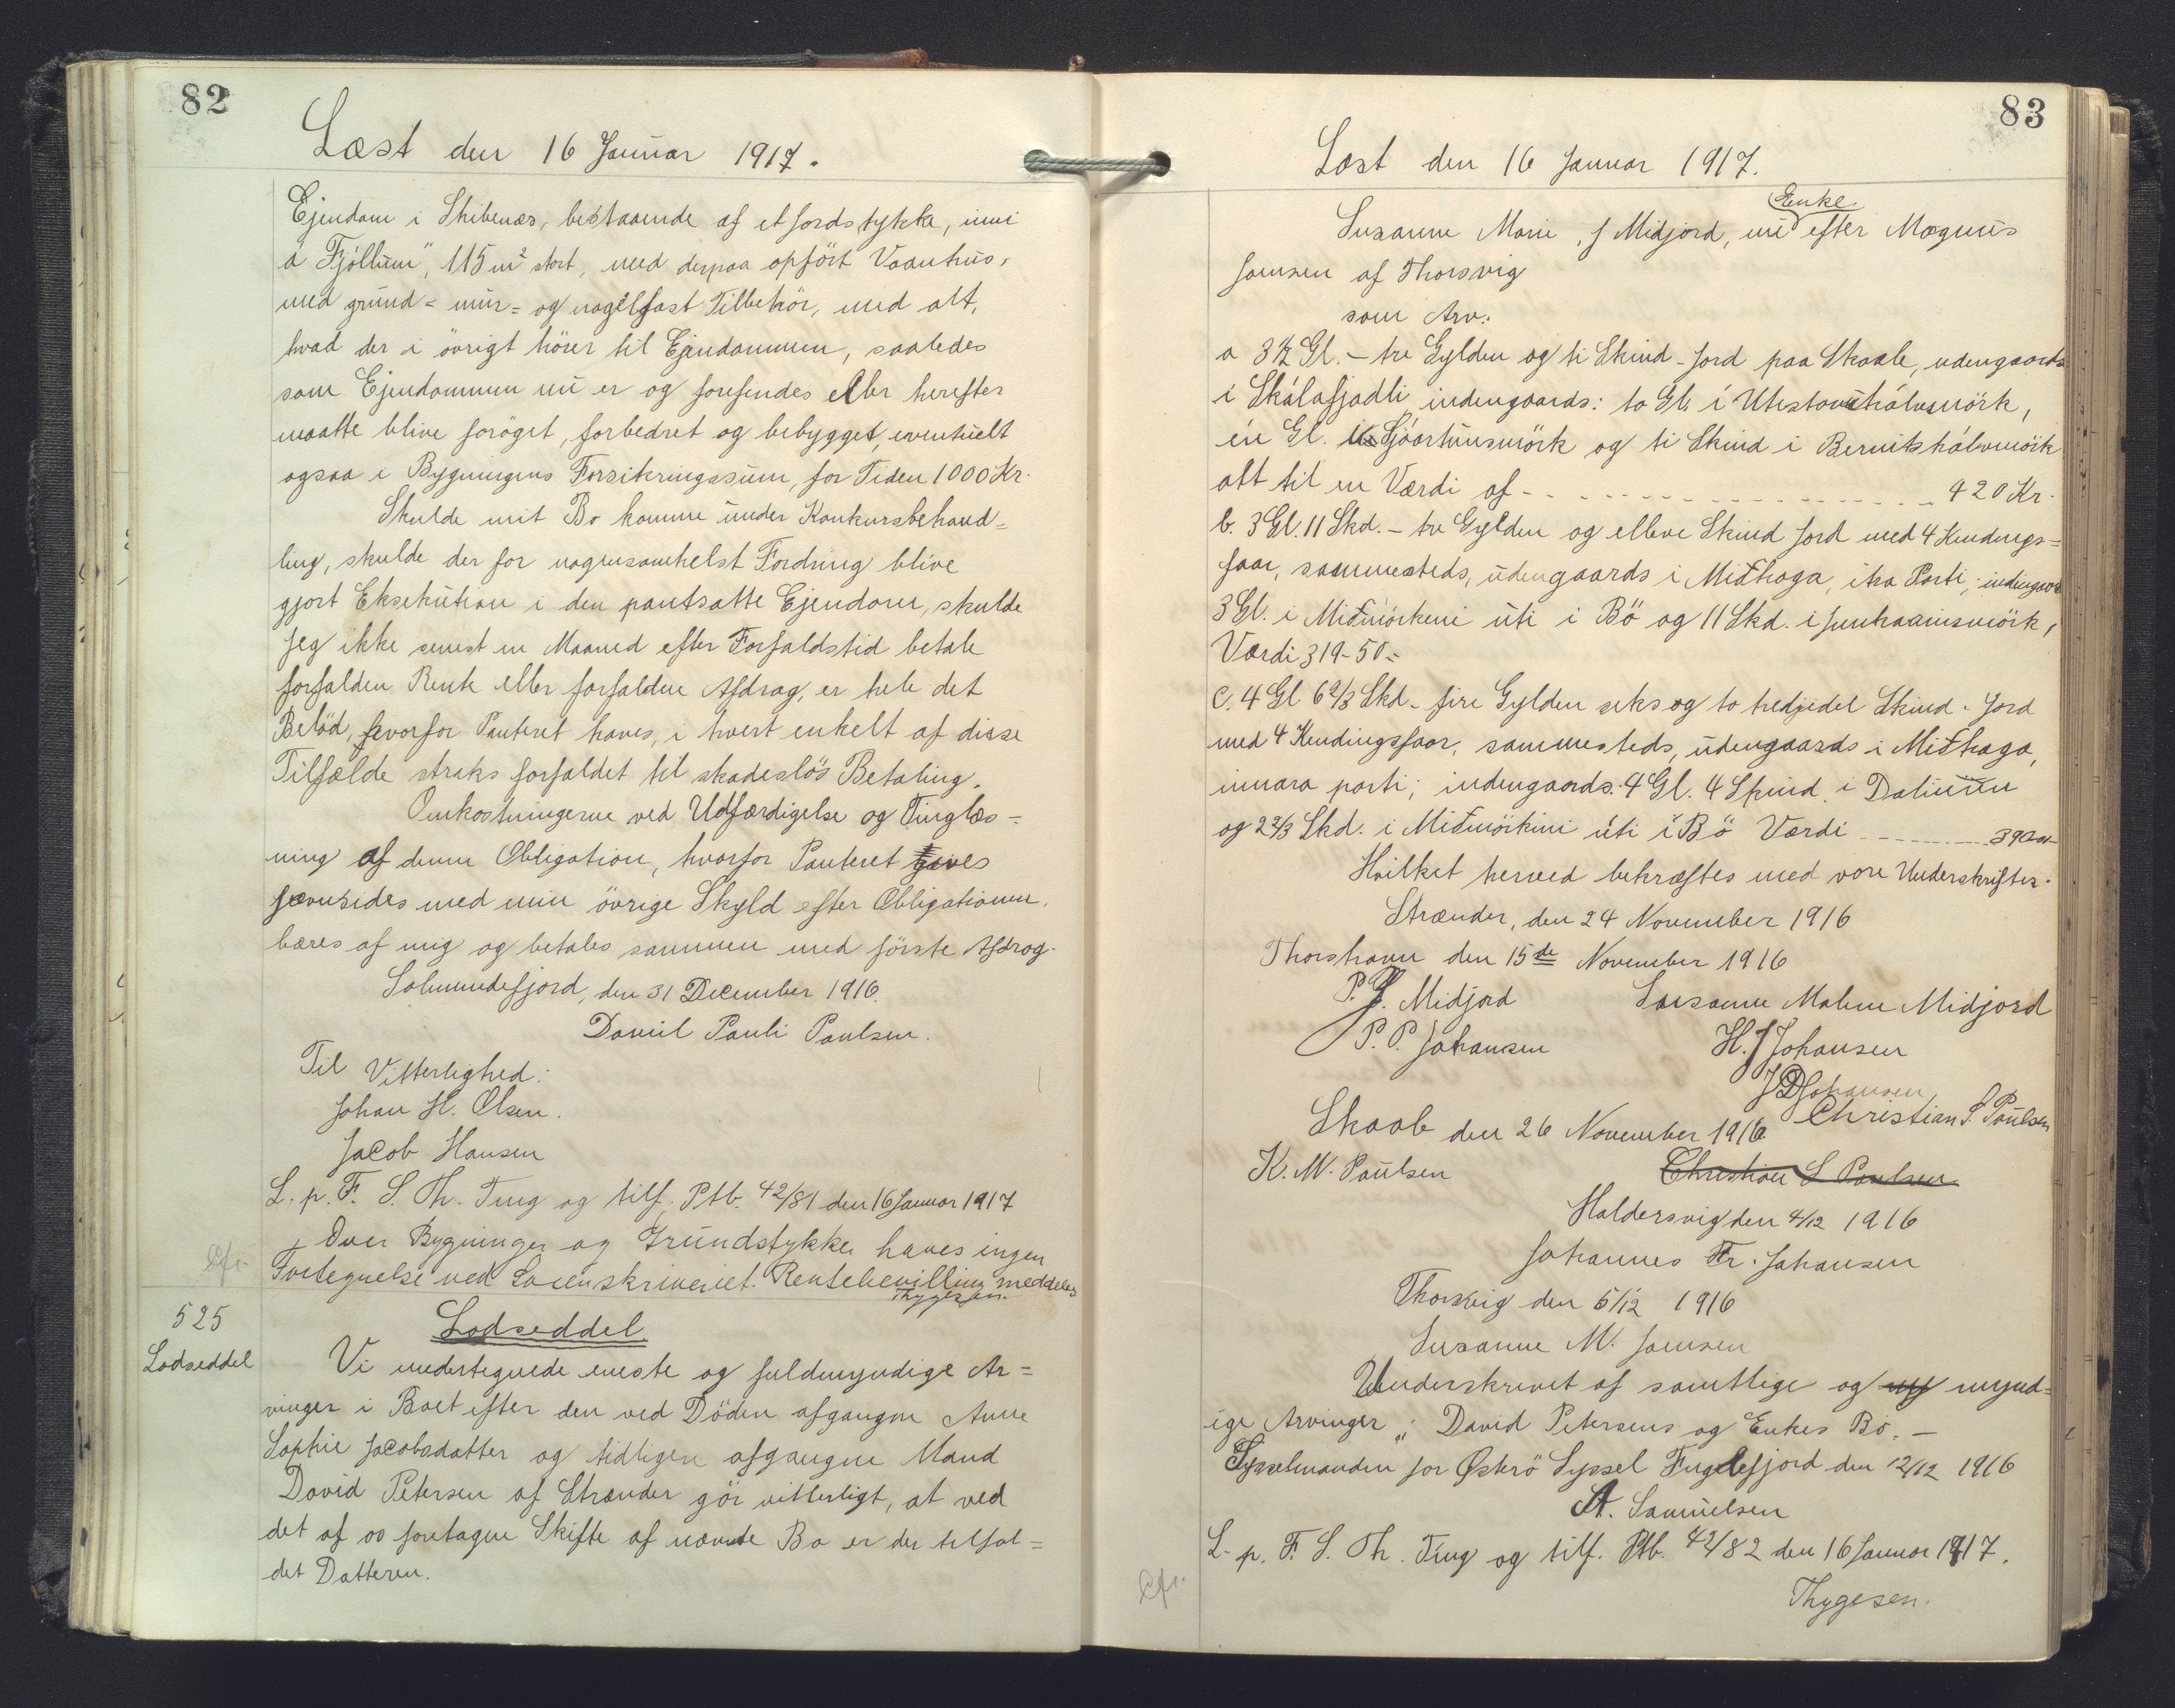 82
Læst den 16 Januar 1917.
Ejendom i Skibenæs, bestaaende af et Jordstykke, inni
á Fjøllum", 115 m² stort, med derpaa opført Vaanhus,
med grund= mur= og nagelfast Tilbehör, med alt,
hvad der i övrigt hörer til Ejendommen, saaledes
som Ejendommen nu er og forefindes eller herefter
maatte blive foröget, forbedret og bebygget, eventuelt
ogsaa i Bygningens Forsikringssum, for Tiden 1000 Kr.
Skulde mit Bo komme under Konkursbehand=
ling, skulde der for nogensomhelst Fordring blive
gjort Eksekution i den pantsatte Ejendom, skulde
jeg ikke senest en Maaned efter Forfaldstid betale
forfalden Rente eller forfaldne Afdrag, er hele det
Belöb, hvorfor Panteret haves, i hvert enkelt af disse
Tilfælde straks forfaldet til skadeslös Betaling.
Omkostningerne ved Udfærdigelse og Tinglæs=
ning af denne Obligation, hvorfor Panteret gives
jævnsides med min övrige Skyld efter Obligationen.
bæres af mig og betales sammen med förste Afdrag.
Solmundefjord, den 31 December 1916.
Daniel Pauli Poulsen.
Til Vitterlighed:
Johan H. Olsen.
Jacob Hansen
L. p. F. S. Th. Ting og tilf. Ptb. 42/81 den 16 Januar 1917
Over Bygninger og Grundstykker haves ingen
Fortegnelse ved Sorenskriveriet. Rentebevilling meddeles
Thygesen.
Cfr.
525
Lodseddel
Lodseddel
Vi undertegnede eneste og fuldmyndige Ar=
vinger i Boet efter den ved Döden afgangne Anne
Sophie Jacobsdatter og tidligere afgangne Mand
David Petersen af Strænder gör vitterligt, at ved
det af os foretagne Skifte af nævnte Bo er der tilfal=
det Datteren.
83
Læst den 16 Januar 1917.
Enke
Susanne Marie, f Midjord, nu efter Magnus
Joensen af Thorsvig
som Arv:
a 3½ Gl. — tre Gylden og ti Skind - Jord paa Skaale, udengaards
i Skálafjadli, indengaards: to Gl. i Utistovuhálvumörk,
én Gl. Sjóartúnsmörk og ti Skind i Bernitshálvmörk
alt til en Værdi af - - - 420 Kr.
b. 3 Gl. 11 Skd. — tre Gylden og elleve Skind Jord med 4 Kendings=
faar, sammesteds, udengaards i Miðhaga, ita Parti; indengaards
3 Gl. i Miðmörkeni úti i Bö og 11 Skd. i Junkaarismörk,
Værdi 319-50.-
C. 4 Gl 6 2/3 Skd. — fire Gylden seks og to tredjedel Skind - Jord
med 4 Kendingsfaar, sammesteds, udengaards i Miðhaga,
innara parti; indengaards: 4 Gl. 4 Skind. i Dalinum
og 2 2/3 Skd. i Miðmörkini úti í Bö Værdi - - -
Hvilket herved bekræftes med vore Underskrifter.
Strænder, den 24 November 1916
Thorshavn den 15de November 1916
P. J. Midjord Susanne Malene Midjord
P. P. Johansen H. J Johansen
J D Johansen
Christian S Poulsen
Skaale den 26 November 1916
K. M. Poulsen Christian S Poulsen.
Haldersvig den 4/12 1916
Johannes Fr. Johansen
Thorsvig den 5/12 1916
Susanne M. Joensen
Underskrevet af samtlige og my mynd=
ige Arvinger i David Petersens og Enkes Bo. —
Sysselmanden for Østerö Syssel Fuglefjord den 12/12 1916
A. Samuelsen
L. p. F. S. Th. Ting og tilf. Ptb. 42/82 den 16 Januar 1917.
Thygesen.
Cfr.